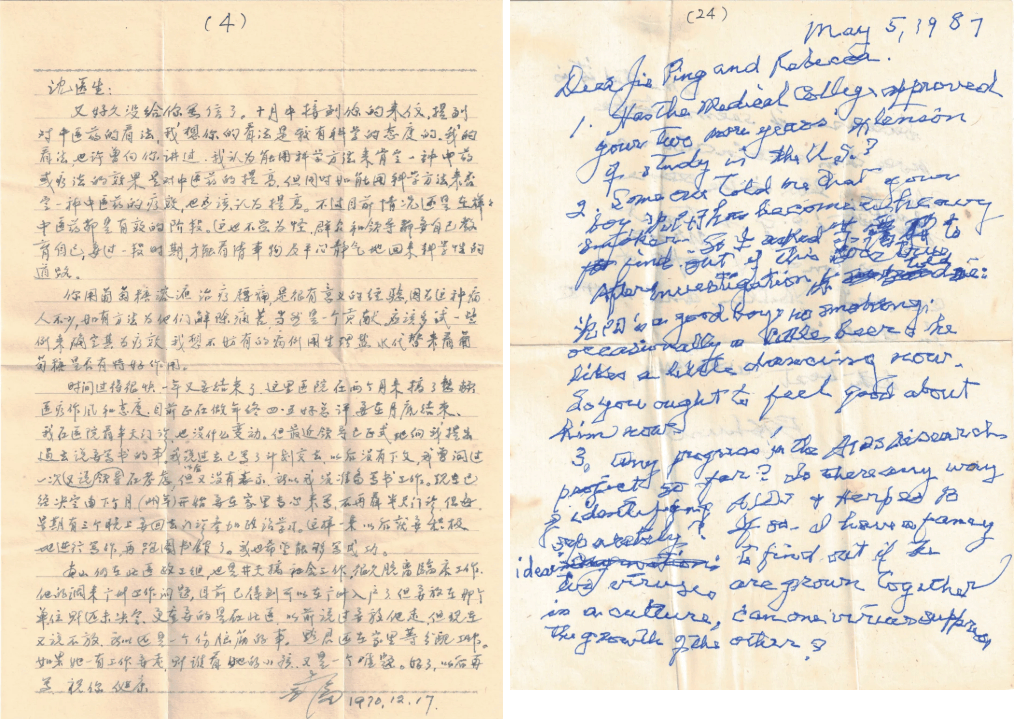 (4)
沈医生:
又好久没给你写信了。十月中接到你的来信,提到
对中医药的看法,我想你的看法是我有科学的态度的。我的
看法,也许曾向你讲过,我认为能用科学方法来肯定一种中药
或疗法的效果是对中医药的提高,但同时如能用科学方法来否
定一种中医药的疗效,也应该认为提高。不过目前情况还是在
中医药都是有效的阶段。这也不
育自己,要过一段时期,才能看清事物及平心静气地回来科学性的
道路。
你用葡萄糖 治疗腰痛是很有意义的经验,因为这种病
人不少,如有方法为他们解除痛苦当然是一个贡献,应该多试一些
例来确定其为疗效,我想不妨有的病例用生理盐水代替来看葡
萄糖是否有特好作用。
时间过得很快一年又要结束了,这里医院在两个月来搞了整顿
医疗作风和态度,目前正在做年终四好总评要在月底结束。
我在医院最半天门诊,也没什么变动。但最近领导已正式地向我提出
过去说要写书的事,我说过去已写了计划交去,以后没有下文,我曾问过
一次 领导在考虑,但以后又没有表示,所以我没准备写书工作。现在已
经决定由下个月(明年)开始要在家里专心来写,不再最半天门诊,但每
星期有三个晚上要回去门诊参加政治学习。这样一来以后就要积极
地进行写作,再跑图书馆了。我也希望能够写成功。
在此医政工组,也是半天搞社会工作,
他的调来广州工作问题,目前已得到可以在广州入户了,但要放在那个
单位 还未决定。 以前说过要放他走,但现在
又说不放,所以还是一个伤脑筋的事。 还在家里等分配工作。
如果她一有工作要走,那谁看她的小孩,又是一个难题。好了,以后再
写,祝你 健康
1970.12.17.
(24)
May 5, 1987
Dear Jie Ping and Rebecca.
1. Has the Medical College approved
your two more years' extension
of study in the U.S.?
2. Some one told me that your
boy has become a heavy
smoker. So I asked to
find out if this
After investigation
is a good boy: no smoking;
occasionally a beer & he
likes a little dancing now.
So you ought to feel good about
him now?
3. Any progress in the Aids research
project so far? Is there any way
of identifying AIDS & Herpes B
separately? If so, I have a fancy
idea to find out if
two viruses are grown together
in a culture, can one virus suppress
the growth of the other?